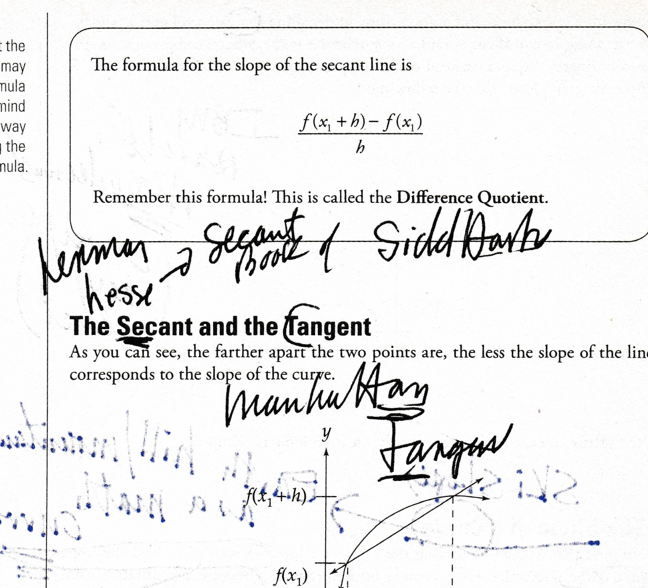 t the
may
mula
mind
way
g the
mula.
The formula for the slope of the secant line is
f(x₁ + h) − f(x₁)
h
Remember this formula! This is called the Difference Quotient.
hesse → Secant Book of SiddHarth
The Secant and the Tangent
As you can see, the farther apart the two points are, the less the slope of the line
corresponds to the slope of the curve.
ManhaTTan
Tangus
y
f(x₁ + h)
f(x₁)